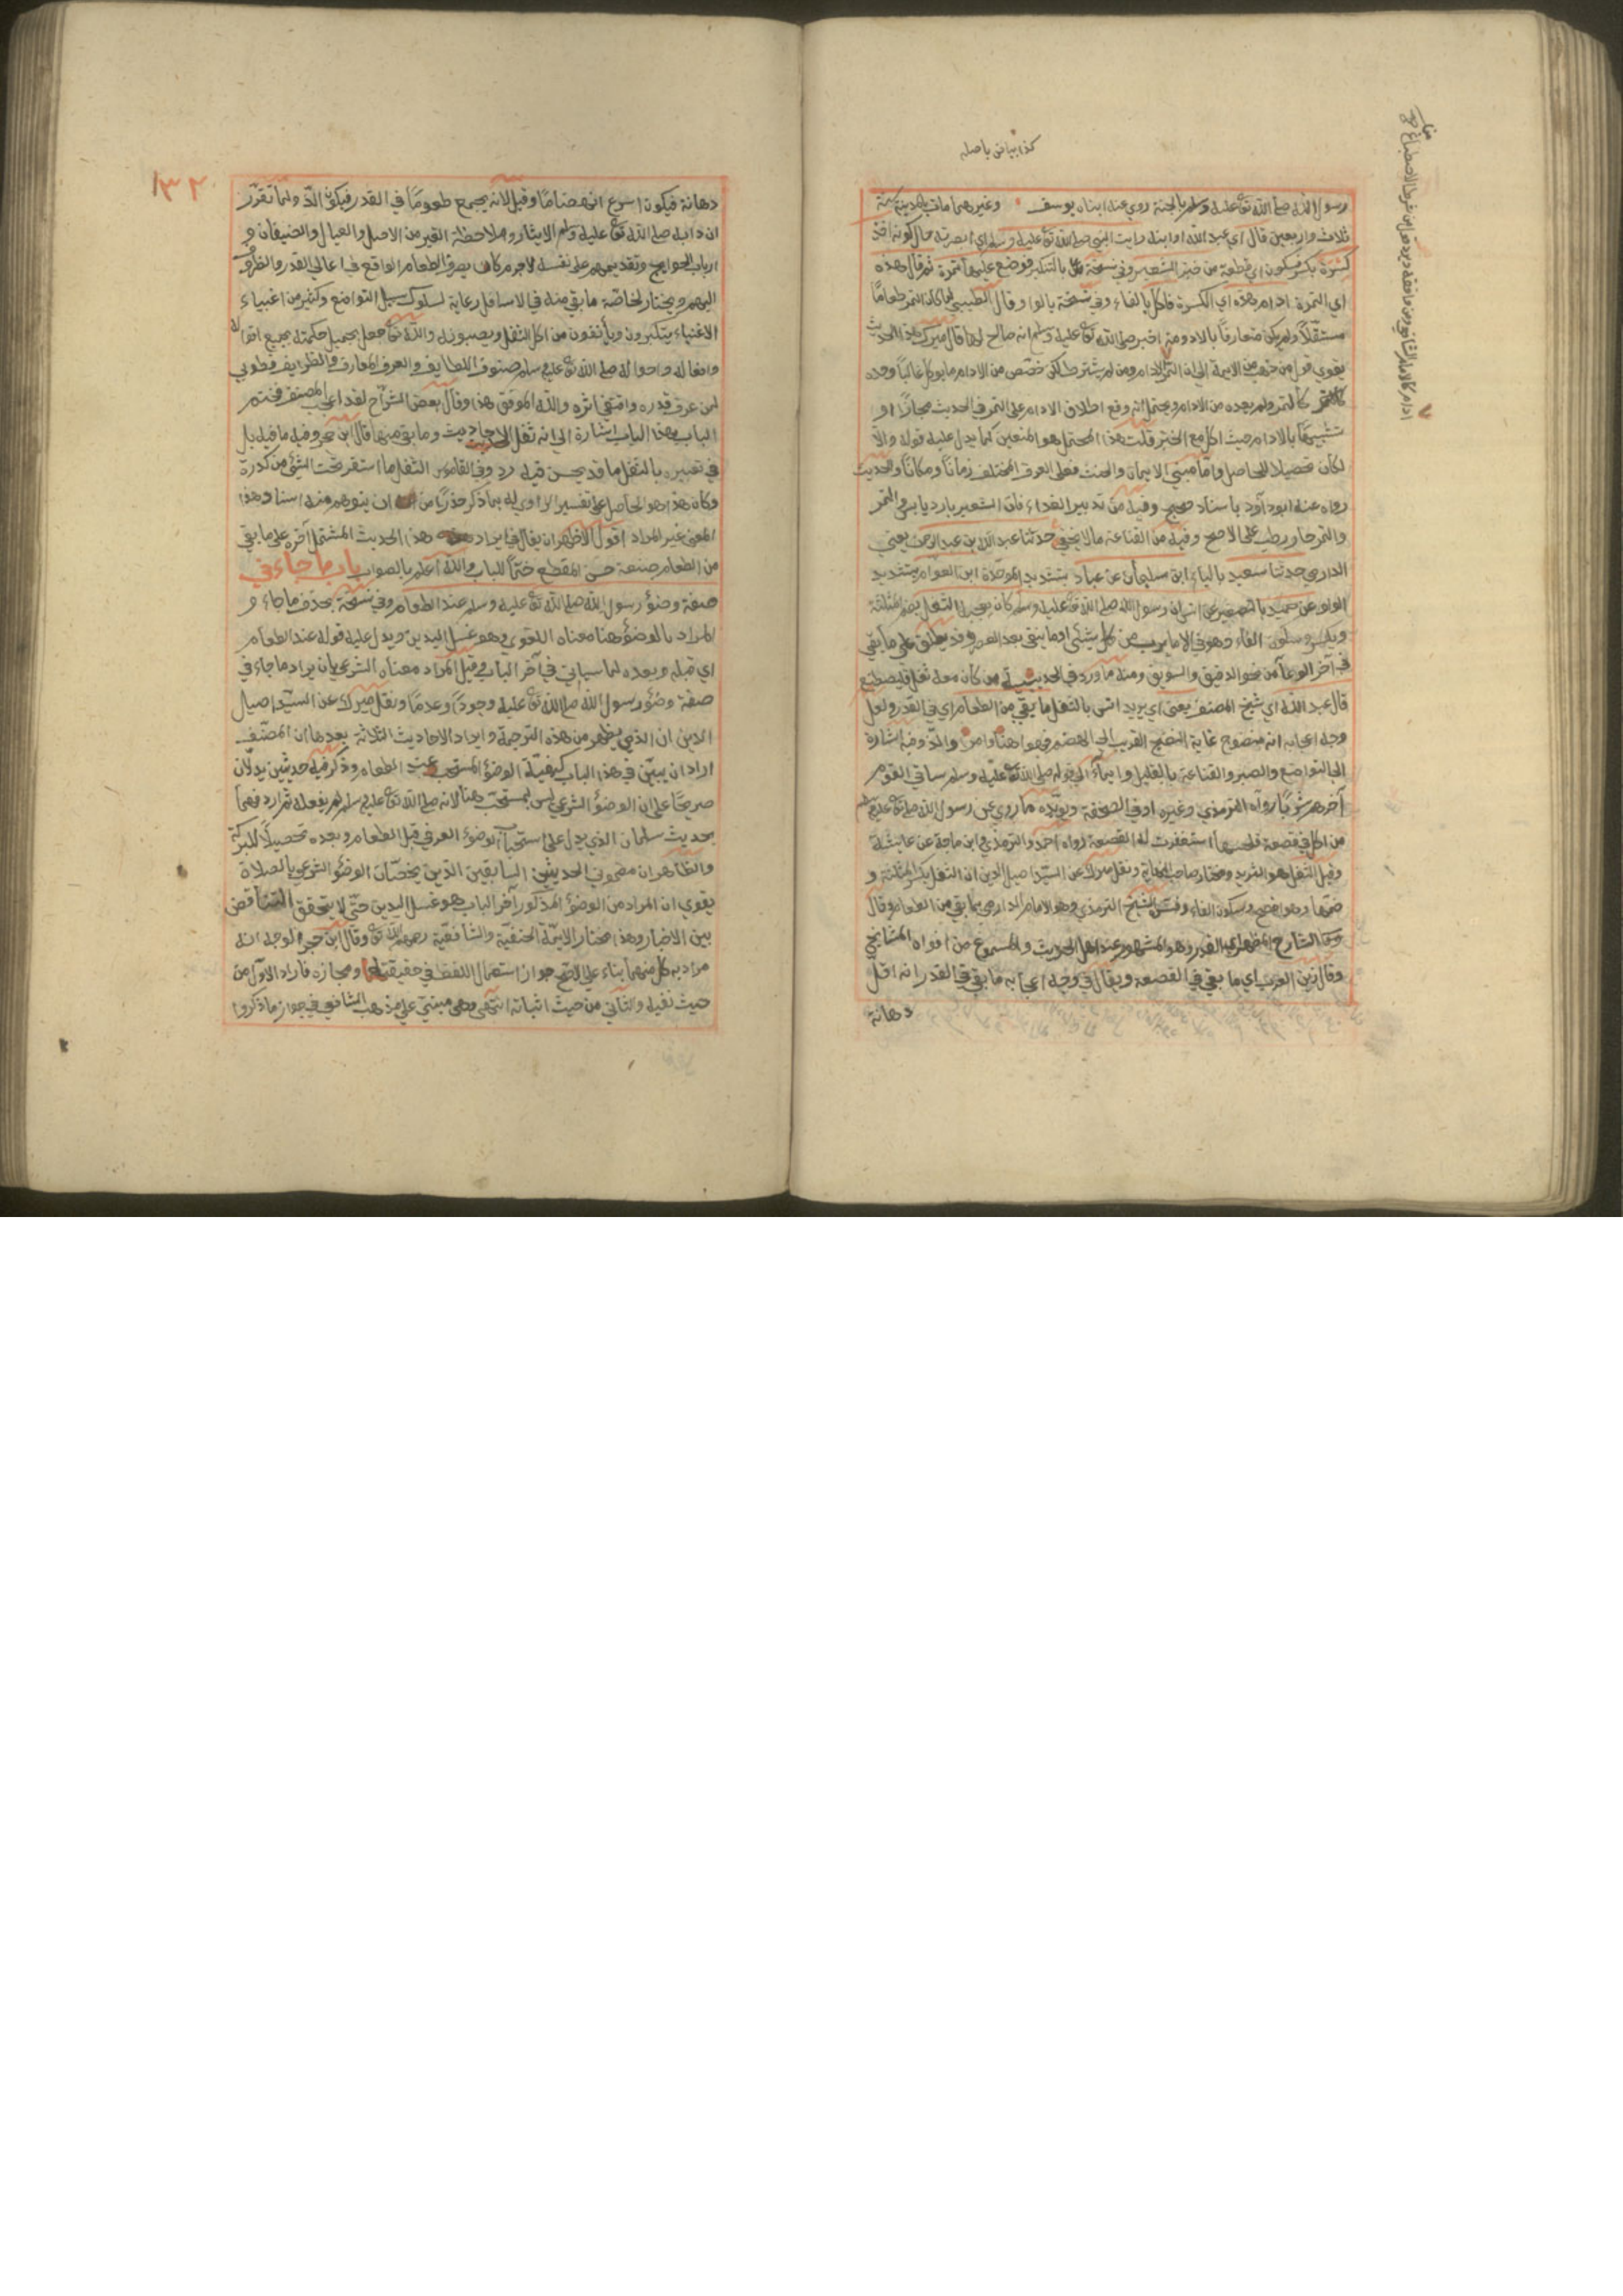 كذا بياض باصله
رسول الله صلى الله تع عليه وسلم بالجنة روي عنه ابناه يوسف وغيرهما مات بالمدينة سنة
ثلاث واربعين قال اي عبد الله او ابنه رايت النبي صلى الله تع عليه وسلم اي ابصرته حال كونه اخذ
كسرة بكسر فسكون اي قطعة من خبز الشعير وفي نسخة بالتنكير فوضع عليها تمرة ثم قال هذه
اي التمرة ادام هذه اي الكسرة فاكل بالفاء وفي نسخة بالواو قال الطيبي لما كان التمر طعاما
مستقلا ولم يكن متعارفا بالادومة اخبر صلى الله تع عليه وسلم انه صالح لها قال ميرك هذا الحديث
يقوي قول من ذهب من الايمة الى ان التمر ادام ومن لم يشترط لكن خصص من الادام ما يوكل غالبا وحده
كالتمر ولم يعده من الادام ويحتمل انه وقع اطلاق الادام على التمر في الحديث مجازا او
تشبيها بالادام حيث اكل مع الخبز قلت هذا المحتمل هو المتعين كما يدل عليه قوله والا
لكان تحصيلا للحاصل واما مبنى الايمان والحنث فعلى العرف المختلف زمانا ومكانا والحديث
رواه عنه ابو داود باسناد صحيح وفيه من تدبير الغداء فان الشعير بارد يابس والتمر
والتمر حار رطب على الاصح وفيه من القناعة ما لا يخفى حدثنا عبد الله بن عبد الرحمن يعني
الدارمي حدثنا سعيد بالياء ابن سليمان عن عباد بتشديد الموحدة ابن العوام بتشديد
الواو عن حميد بالتصغير عن انس ان رسول الله صلى الله تع عليه وسلم كان يعجبه الثفل بضم المثلثة
ويكسر وسكون الفاء وهو في الاصل من كل شيئ او ما يبقى بعد العصر وقد يطلق على ما بقي
في آخر الوعاء من نحو الدقيق والسويق ومنه ما ورد في الحديث من كان معه ثفل فليصطنع
قال عبد الله اي شيخ المصنف يعني اي يريد انس بالثفل ما بقي من الطعام اي في القدر ولعل
وجه اعجابه انه منضوج غاية النضج القريب الى الهضم فهو اهنا وامرا والذ وفيه اشارة
الى التواضع والصبر والقناعة بالقليل وايماء الى قوله صلى الله تع عليه وسلم ساقي القوم
آخرهم شربا رواه الترمذي وغيره او في الصحفة ويؤيده ما روي عن رسول الله صلى تع عليه وسلم
من اكل في قصعة فلحسها استغفرت له القصعة رواه احمد والترمذي وابن ماجة عن عايشة
وقيل الثفل هو الثريد ومختار صاحب النهاية ونقل ميرك عن السيد اصيل الدين ان الثفل بكسر المثلثة و
ضمها وهو افصح وسكون الفاء وفسره الشيخ الترمذي وهو الامام الدارمي بما بقي من الطعام وقال
الشارح المظهر اي القدر وهو المشهور عند اهل الحديث والمسموع من افواه المشايخ
وقال زين العرب اي ما بقي في القصعة ويقال في وجه اعجابه ما بقي في القدر انه اقل
دهانة
١٣٢
دهانة فيكون اسرع انهضاما وقيل لانه يجمع طعوما في القدر فيكون الذ ولما تقرر
ان دابه صلى الله تع عليه وسلم الايثار وملاحظة الغير من الاهل والعيال والضيفان و
ارباب الحوايج وتقديمهم على نفسه لا جرم كان يصرف الطعام الواقع في اعالي القدر والظروف
اليهم ويختار لخاصته ما بقي منه في الاسافل رعاية لسلوك سبيل التواضع وكثير من اغبياء
الاغنياء يتكبرون ويأنفون من اكل الثفل ويصبونه والله تع جعل بجميل حكمته بجميع اقواله
وافعاله واحواله صلى الله تع عليه وسلم صنوف اللطايف والعرف المعارف والظرايف فطوبى
لمن عرف قدره واقتفى اثره والله الموفق هذا وقال بعض الشراح لقد اعجب المصنف فختم
الباب بهذا الباب اشارة الى انه ثفل الاحاديث وما بقي منها قال ابن حجر وفيه ما فيه بل
في تعبيره بالثفل ما قد يحسن فيه رد وفي القاموس الثفل ما استقر تحت الشيئ من كدرة
وكان هذا هو الحاصل على تفسير الراوي له بما ذكر حذرا من ان يتوهم منه اسنا وهذا
المعنى غير المراد اقول الاظهر ان يقال في ايراد هذا الحديث المشتمل آخره على ما بقي
من الطعام صنعة حسن المقطع ختما للباب والله اعلم بالصواب باب ما جاء في
صفة وضوء رسول الله صلى الله تع عليه وسلم عند الطعام وفي نسخة بحذف ما جاء و
المراد بالوضوء هنا معناه اللغوي وهو غسل اليدين ويدل عليه قوله عند الطعام
اي قبله وبعده لما سياتي في آخر الباب وقيل المراد معناه الشرعي بان يراد ما جاء في
صفة وضوء رسول الله صلى الله تع عليه وجودا وعدما ونقل ميرك عن السيد اصيل
الدين ان الذي يظهر من هذه الترجمة وايراد الاحاديث الثلاثة بعدها ان المصنف
اراد ان يبين في هذا الباب كيفية الوضوء المستحب عند الطعام وذكر فيه حديثين يدلان
صريحا على ان الوضوء الشرعي ليس بمستحب هنا لانه صلى الله تع عليه وسلم لم يفعله ثم اردفهما
بحديث سلمان الذي يدل على استحباب الوضوء العرفي قبل الطعام وبعده تحصيلا للبركة
والظاهر ان مضموني الحديثين السابقين الذين يخصان الوضوء الشرعي بالصلاة
يقوي ان المراد من الوضوء المذكور آخر الباب هو غسل اليدين حتى لا يتحقق التناقض
بين الاخبار وهذا مختار الايمة الحنفية والشافعية رحمهم الله تع وقال ابن حجر الوجه انه
مراد به كل منهما بناء على الاصح جواز استعمال اللفظ في حقيقته ومجازه فاراد الاول من
حيث نفيه والثاني من حيث اثباته انتهى وهي مبنى على مذهب الشافعي في جواز ما ذكروا